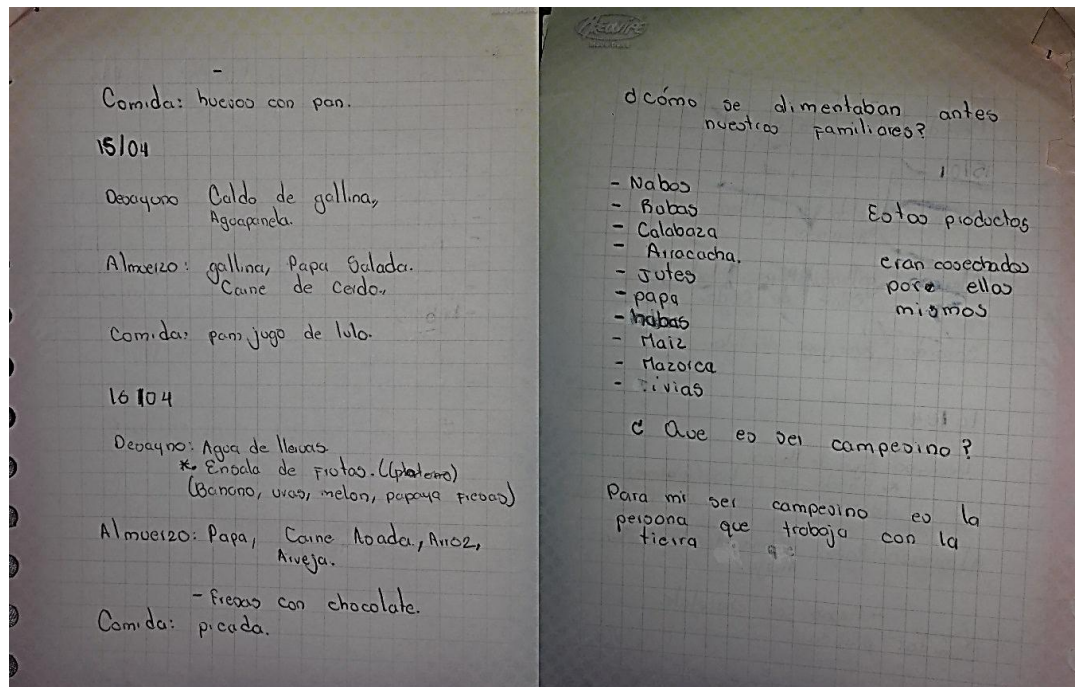 -
Comida: huevos con pan.
15/04
Desayuno Caldo de gallina,,
Aguapanela.
Almuerzo: gallina, Papa Salada.
Carne de Cerdo,,
Comida: pan, jugo de lulo.
16/04
Desayno: Agua de
* Ensala de Frutas. ((platano)
(Banano, uvas, melon, papaya Fresas)
Almuerzo: Papa, Carne Asada, Arroz,
Arveja.
- Fresas con chocolate.
Comida: picada.
¿cómo se alimentaban antes
nuestros Familiares?
- Nabos
- Rubas
- Calabaza
- Arracacha.
- Jutes
- papa
- habas
- Maiz
- Mazorca
- ivias
Estos productos
eran cosechados
por ellos
mismos
¿ Que es ser campesino?
Para mi ser campesino es la
persona que trabaja con la
tierra